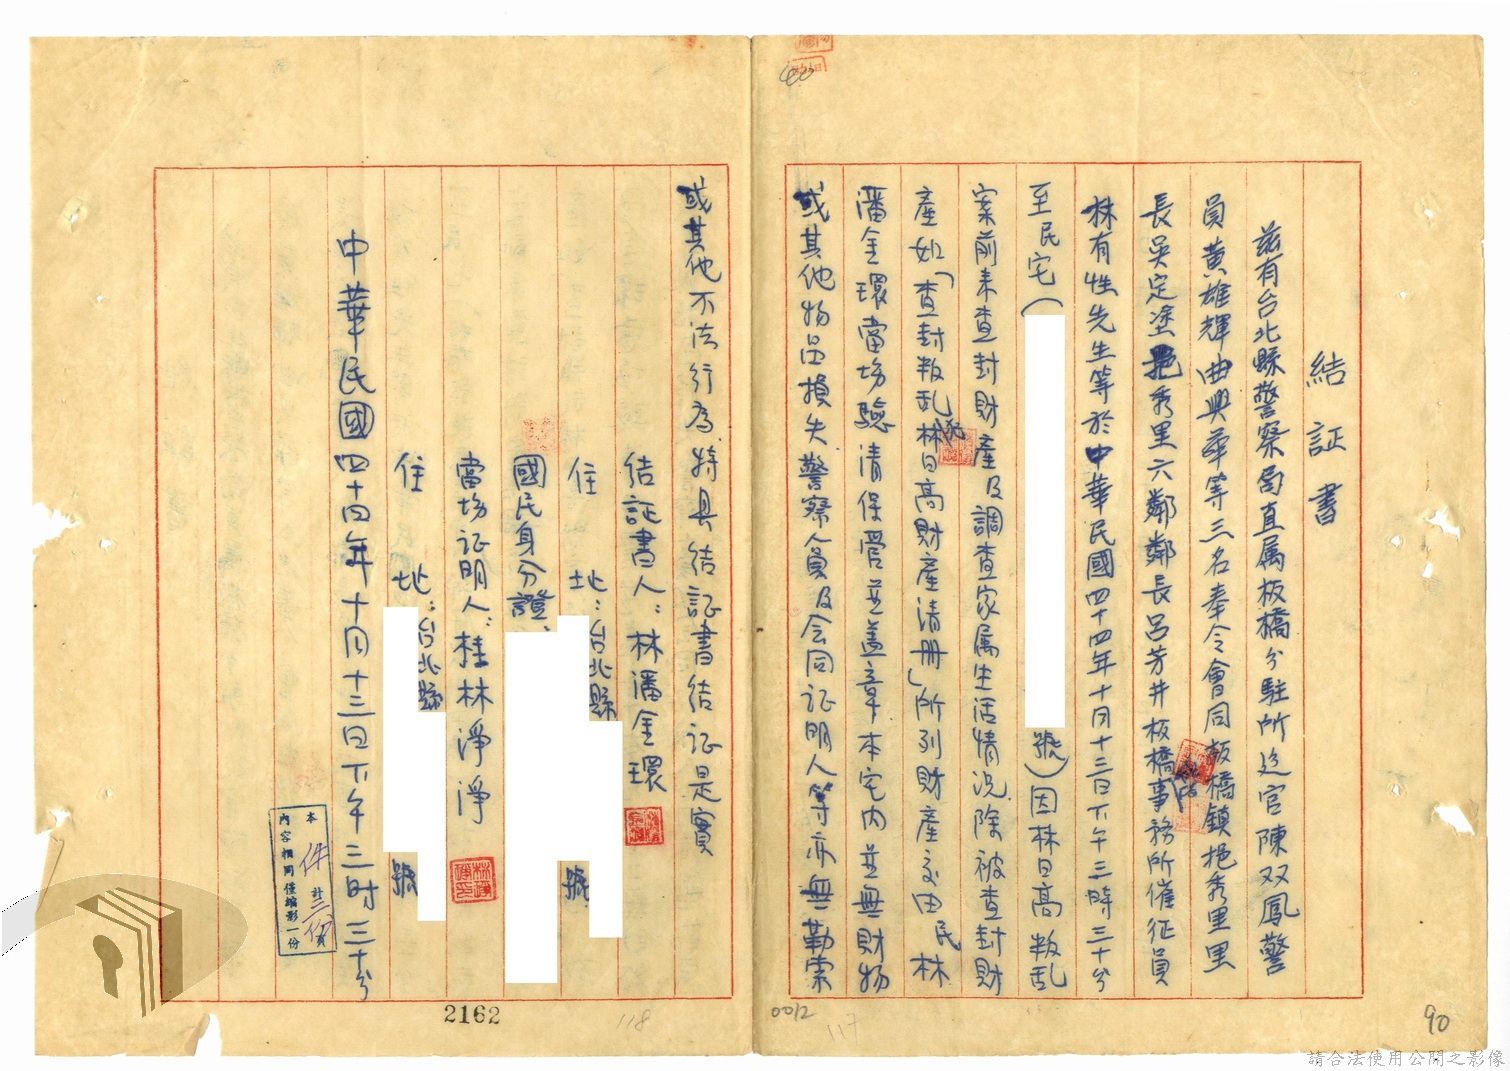 結証書
茲有台北縣警察局直属板橋分駐所巡官陳双鳳警
員黃雄輝曲興華等三名奉令會同板橋鎮挹秀里里
長吳定塗挹秀里六鄰鄰長呂芳井板橋事務所催征員
林有性先生等於中華民國四十四年十月十三日下午三時三十分
至民宅(
號)因林日高叛乱
案前来查封財產及調查家属生活情况除被查封財
產如「查封叛乱林日高財產清册」所列財產交由民林
潘金環當場驗清保管並蓋章本宅内並無財物
或其他物品損失警察人員及会同证明人等亦無勒索
或其他不法行為特具结証書结证是實
结証書人：林潘金環
住址：台北縣
號
國民身分證、
當場证明人：桂林淨淨
住址：台北縣
號
中華民國四十四年十月十三日下午三時三十分
本件計三份頁
內容相同僅縮影一份
2162
118
0012
117
90
請合法使用公開之影像